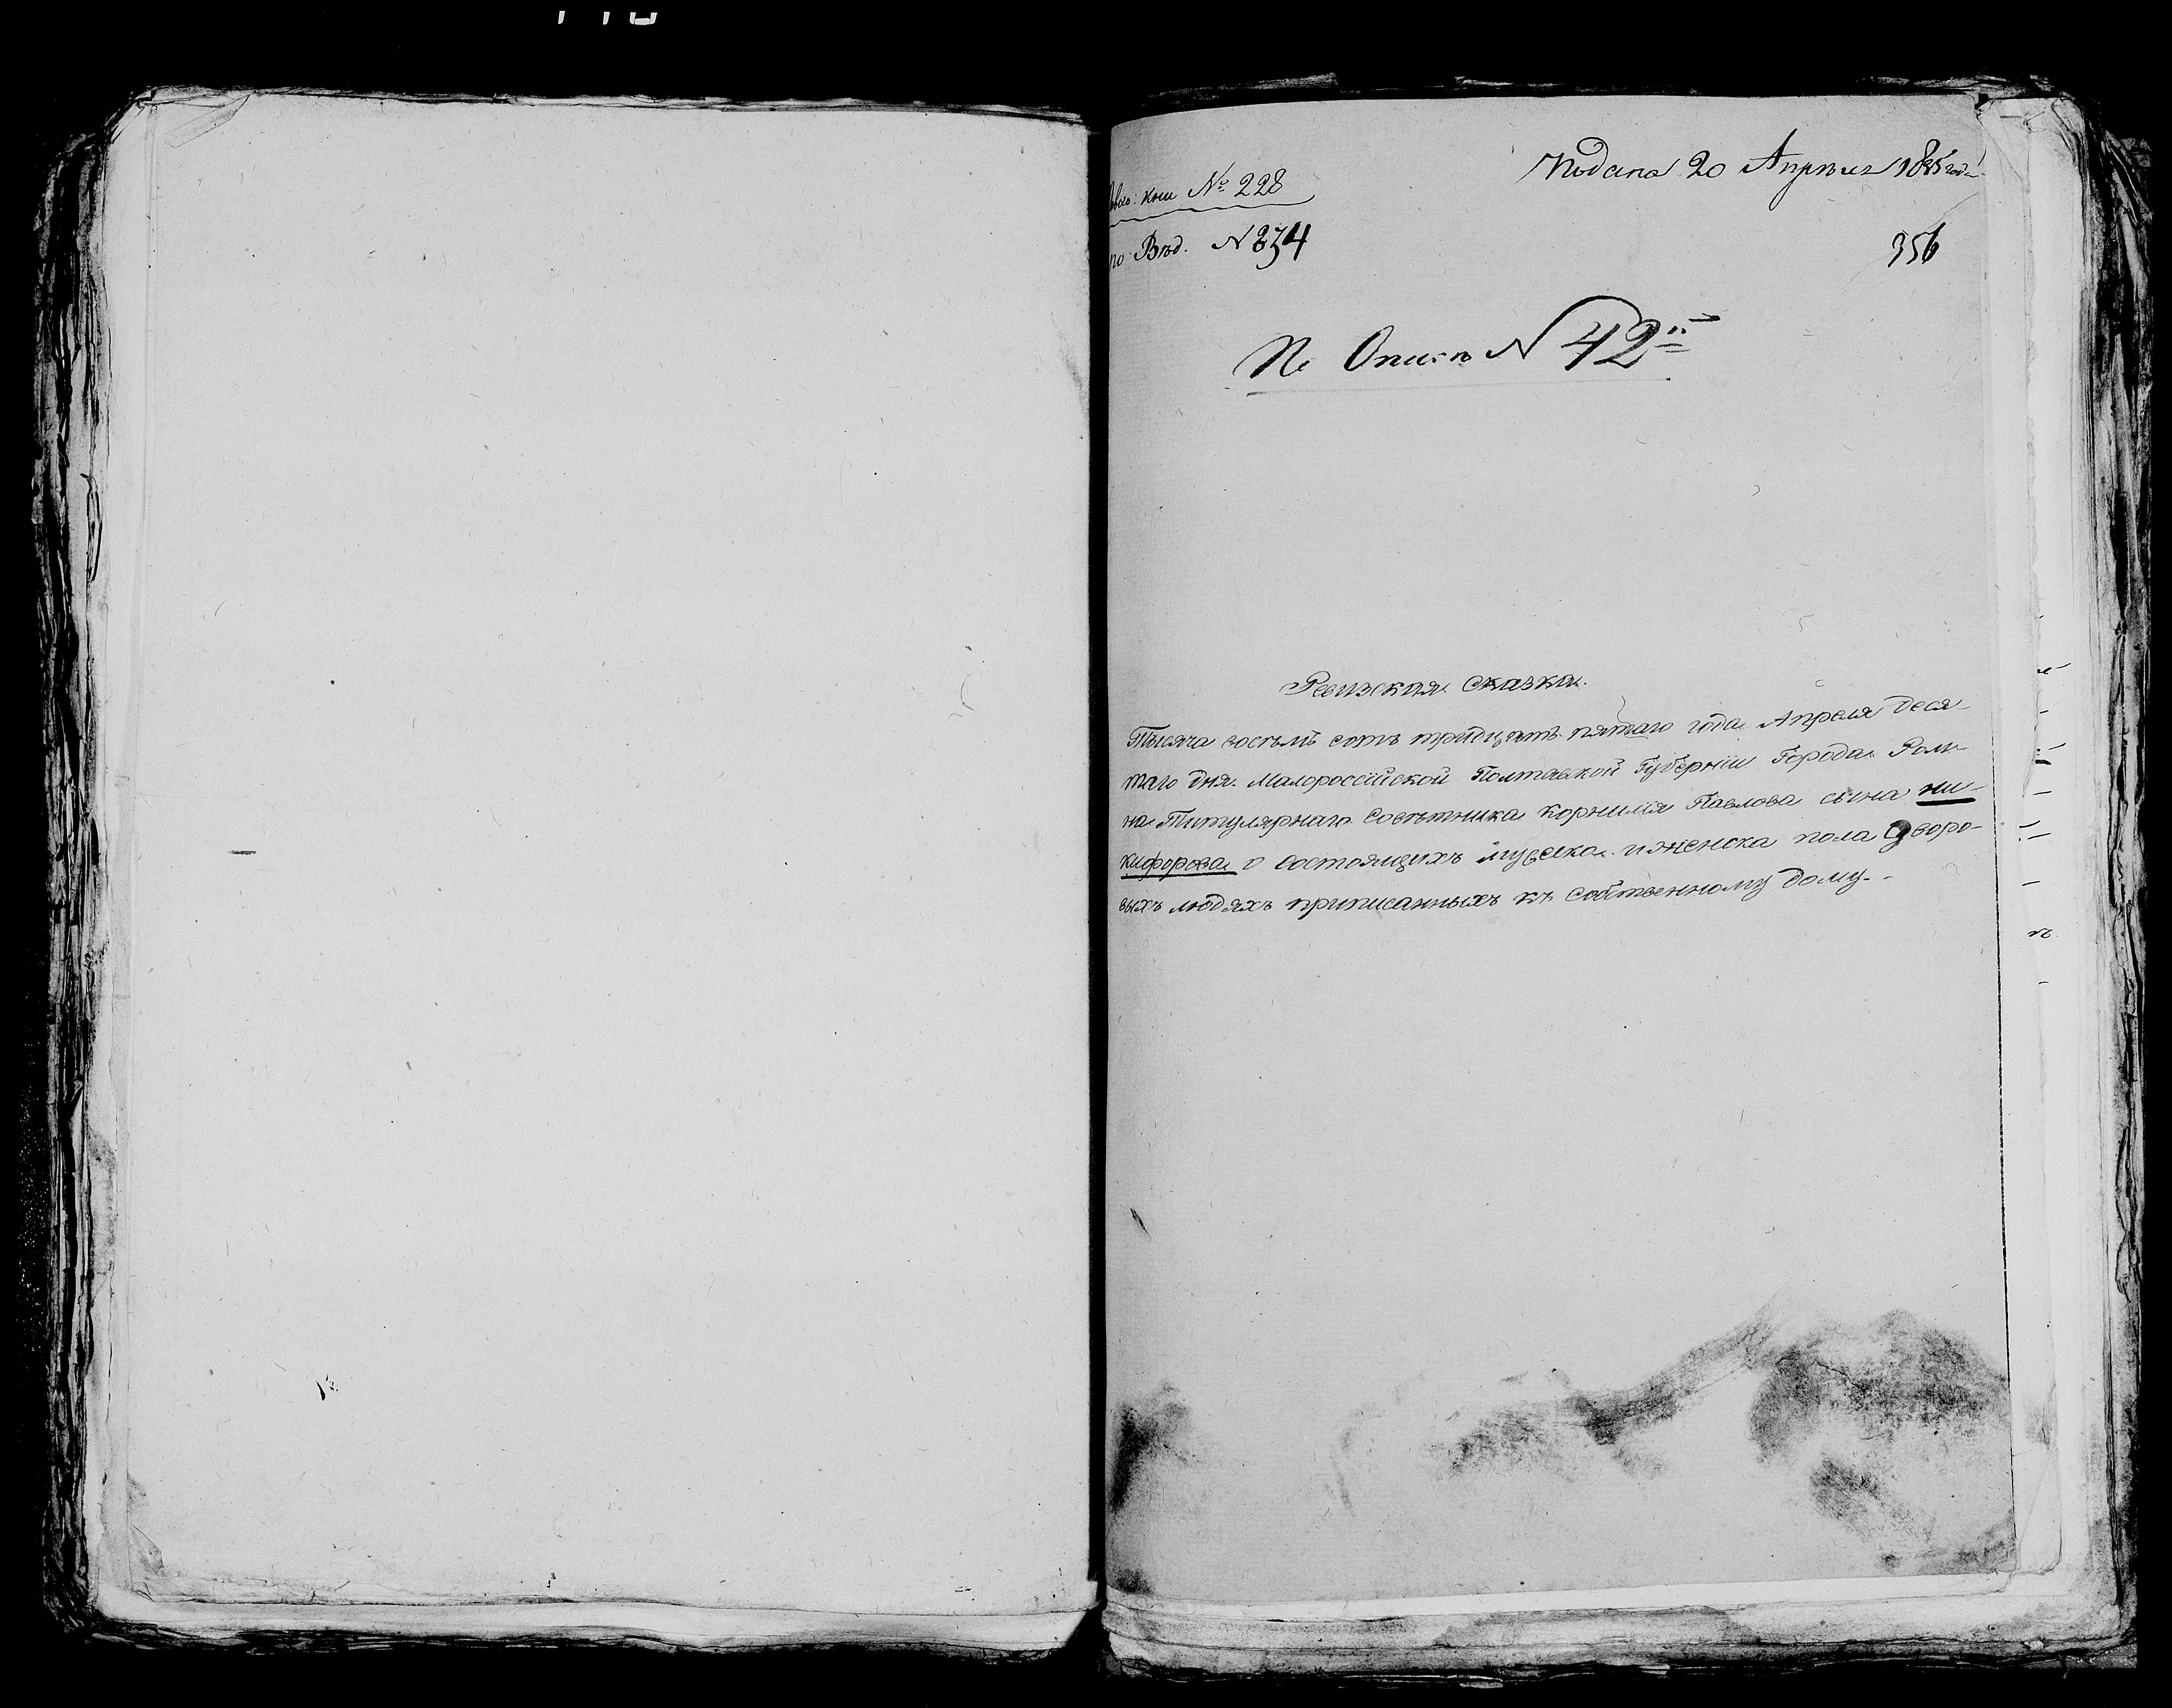 Подана 20 Апреля 1835 год
кни № 228
по Вѣд. № 234
356
По Описи № 42й
Ревизская сказка.
Тысяча восемь сотъ тридцать пятаго года Апреля деся-
таго дня. Малороссійской Полтавской Губерніи Города Ром-
на Титулярнаго Советника Корнилія Павлова сына Ни-
кифорова о состоящихъ мужеска и женска пола дворо-
выхъ людяхъ приписанныхъ къ собственному дому.